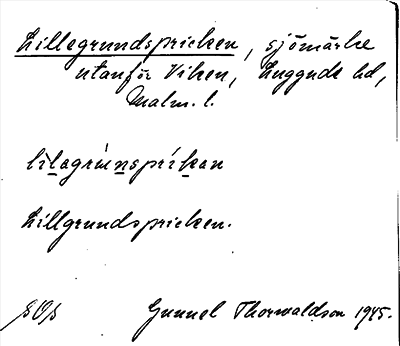 Lillegrundspricken, sjömärke
utanför Viken, Luggude hd,
Malm. l.
lìlagrúnspríkan
Lillgrundspricken.
Gunnel Thorwaldson 1945.